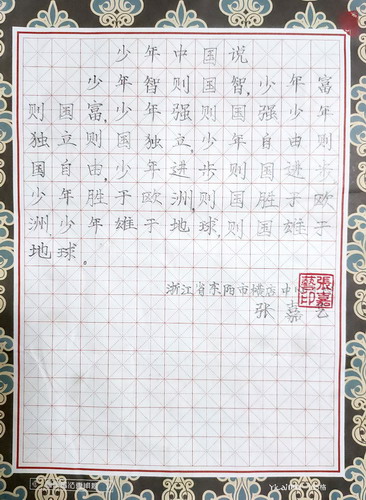 少年中国说
少年智则国智,少年富
则国富,少年强则国强少年
独立则国独立,少年自由则
国自由,少年进步则国进步
少年胜于欧洲,则国胜于欧
洲,少年雄于地球,则国雄于
地球。
浙江省东阳市横店中
张嘉艺
張嘉藝印